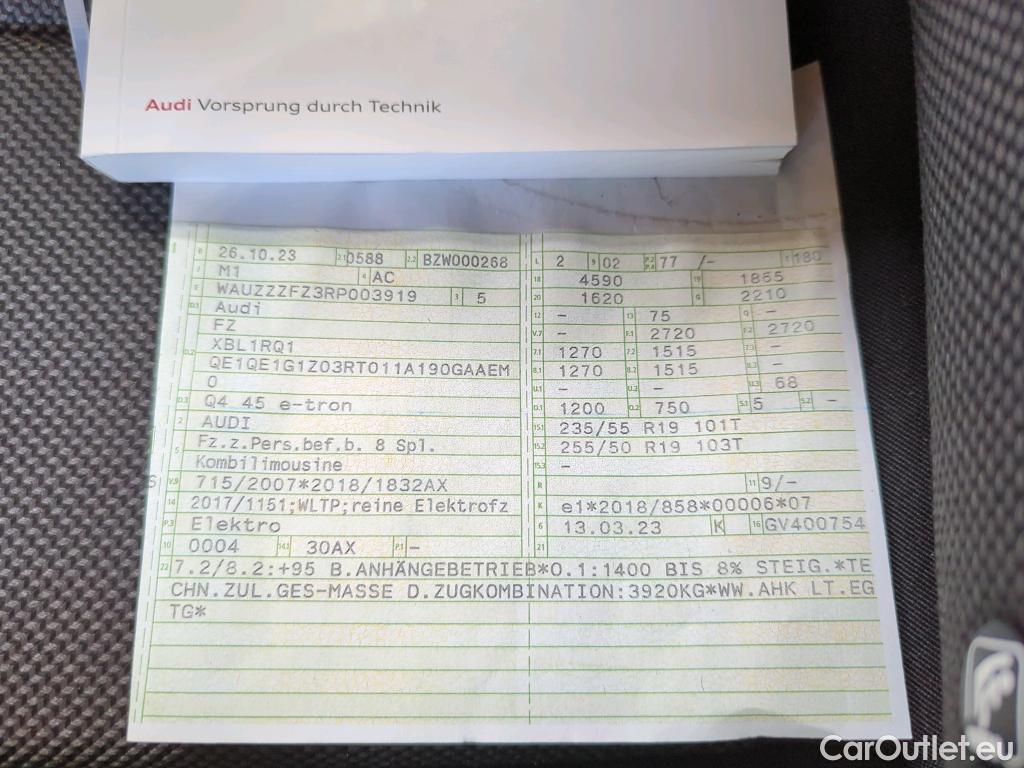 Audi Vorsprung durch Technik
B 26.10.23 2.1 0588 2.2 BZW000268 L 2 9 02 P.2 P.4 77 /- T 180
J M1 4 AC 18 4590 19 1865
E WAUZZZFZ3RP003919 3 5 20 1620 G 2210
D.1 Audi 12 - 13 75 Q -
FZ V.7 - F.1 2720 F.2 2720
D.2 XBL1RQ1 7.1 1270 7.2 1515 7.3 -
QE1QE1G1Z03RT011A190GAAEM 8.1 1270 8.2 1515 8.3 -
0 U.1 - U.2 - U.3 68
D.3 Q4 45 e-tron O.1 1200 O.2 750 S.1 5 S.2 -
2 AUDI 15.1 235/55 R19 101T
5 Fz.z.Pers.bef.b. 8 Spl. 15.2 255/50 R19 103T
Kombilimousine 15.3 -
V.9 715/2007*2018/1832AX R 11 9/-
14 2017/1151;WLTP;reine Elektrofz K e1*2018/858*00006*07
P.3 Elektro 6 13.03.23 K 16 GV400754
10 0004 14.1 30AX P.1 - 21
22 7.2/8.2:+95 B.ANHÄNGEBETRIEB*O.1:1400 BIS 8% STEIG.*TE
CHN.ZUL.GES-MASSE D.ZUGKOMBINATION:3920KG*WW.AHK LT.EG
TG*
CarOutlet.eu